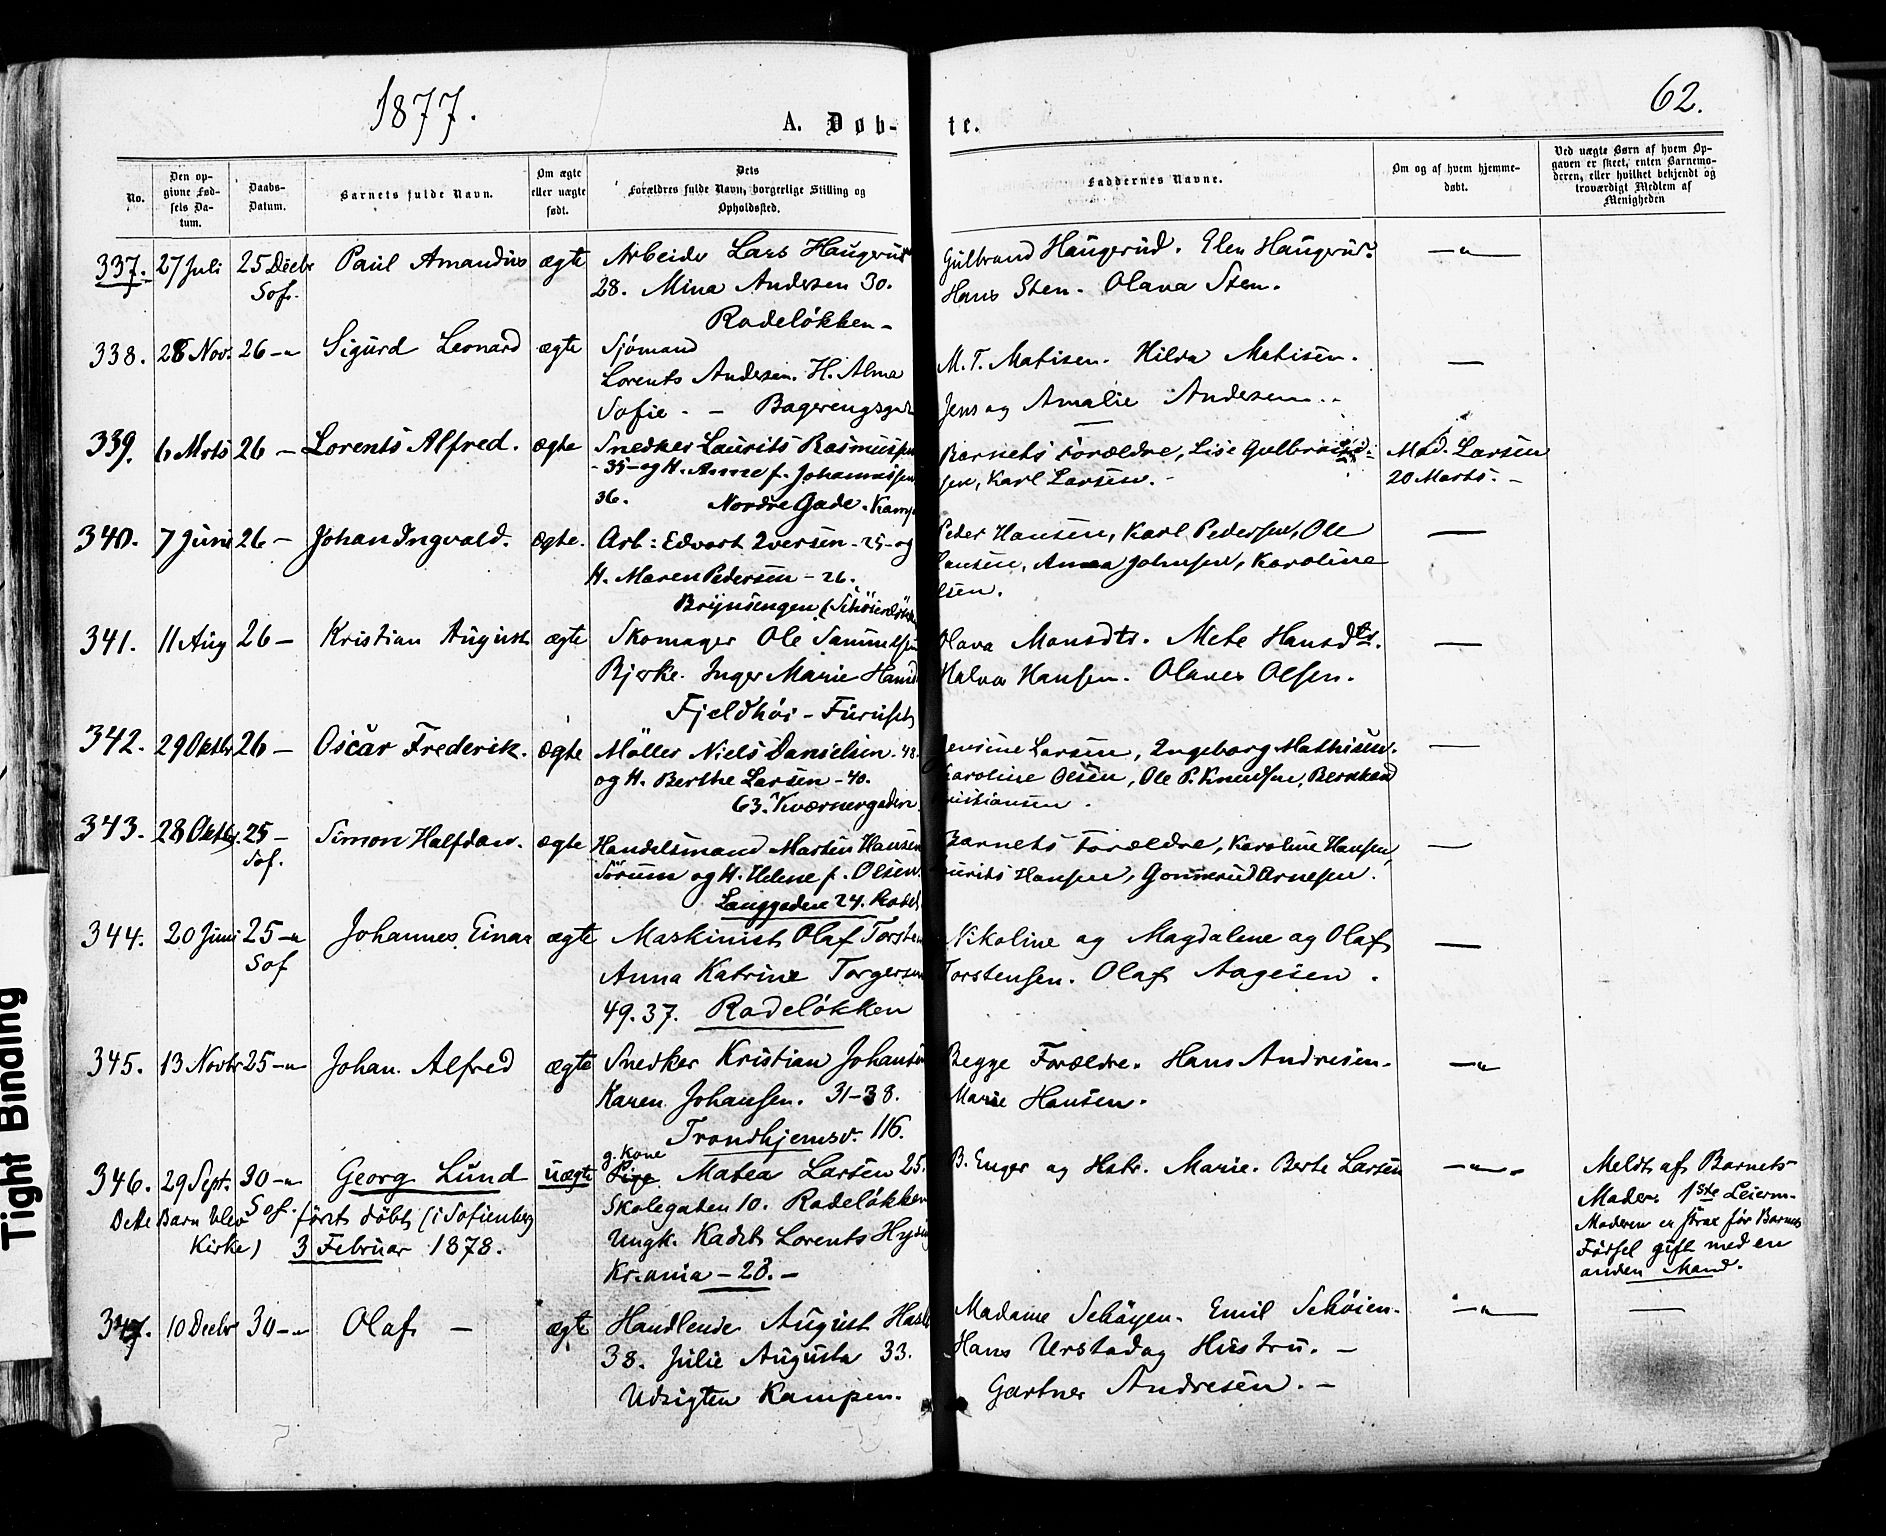 1877.
62.
A. Døb-te.
No.
Den opgivne Fødsels Datum.
Daabs-Datum.
Barnets fulde Navn.
Om ægte eller uægte født.
Dets Forældres fulde Navn, borgerlige Stilling og Opholdssted.
Faddernes Navne.
Om og af hvem hjemmedøbt.
Ved uægte Børn af hvem Opgaven er skeet, enten Barnemoderen, eller hvilket bekjendt og troværdigt Medlem af Menigheden
337. 27 Juli 25 Decbr Paul Amandus ægte Arbeider Lars Haugerud Gulbrand Haugerud. Elen Haugerud.
Sof. 28. Mina Andersen 30. Hans Sten. Olava Sten.
Rodeløkken -
338. 28 Nov. 26 - Sigurd Leonard ægte Sjömand M. T. Matisen. Hilda Matisen. —
Lorents Andersen. H. Alma
Sofie. - Jens og Amalie Andersen.
339. 6 Mrts 26 - Lorents Alfred. ægte Snedker Laurits Rasmussen Barnets Forældre, Lise Mad. Larsen
- 35 - og H. Anne f. Johannessen sen, Karl Larsen. - 20 Marts. -
36. Nordre Gade. Kamp
340. 7 Juni 26 - Johan Ingvald. ægte. Arb: Edvart Iversen - 25 - og Peder Hansen, Karl Pedersen, Ole —
H. Maren Pedersen - 26. ansen, Anna Johnsen, Karoline
Brynsengen lsen.
341. 11 Aug 26 - Kristian August ægte Skomager Ole Samuelsen Olava Monsdtr. Mete Hansdtr. —
Bjerke. Inger Marie Hansd Halvor Hansen. Olaves Olsen.
Fjeldhöi - Furuset
342. 29 Oktbr 26 - Oscar Frederik. ægte Möller Niels Danielsen. 48. Jensine Larsen, Ingeborg Mathisen. —
og H. Berthe Larsen - 40. Karoline Olsen, Ole P. Knudsen, Bernhard
63. Kværnergaden ristiansen.
343. 28 Oktbr. 25 - Simon Halfdan. ægte Handelsmand Martin Hansen Barnets Forældre, Karoline Hansen, —
Sof. Sörum og H. Helene f. Olsen. aurits Hansen, Gonnerud Arnesen.
Langgaden 24. Rodel
344. 20 Juni 25 - Johannes Einar ægte Maskinist Olaf Torsten Nikoline og Magdalene og Olaf —
Sof Anna Katrine Torgersen Torstensen. Olaf Aagesen.
49. 37. Rodeløkken
345. 13 Novbr 25 - Johan Alfred ægte Snedker Kristian Johansen Begge Forældre. Hans Andresen. -
Karen Johansen. 31-38. Marie Hansen.
Trondhjemsv. 116.
g. Kone
346. 29 Sept. 30 - Georg Lund uægte Pige Matea Larsen 25. B. Enger og Hstr. Marie. Berte Larsen Meldt af Barnets
Sof. Skolegaden 10. Rodeløkken Moder. 1ste Leierm.
Dette Barn blev först döbt (i Sofienberg Ungk. Kadet Lorents Moderen er först før Barnets
Kirke) 3 Februar 1878. Kr.ania - 28. - Fødsel gift med en
anden Mand.
347. 10 Decbr 30 - Olaf - ægte Handlende August Madame Schöyen. Emil Schöien. —
38. Julie Augusta 33. Hans Urstad og Hustru. -
Udsigten Kampen. Gartner Andresen. -
Tight Binding